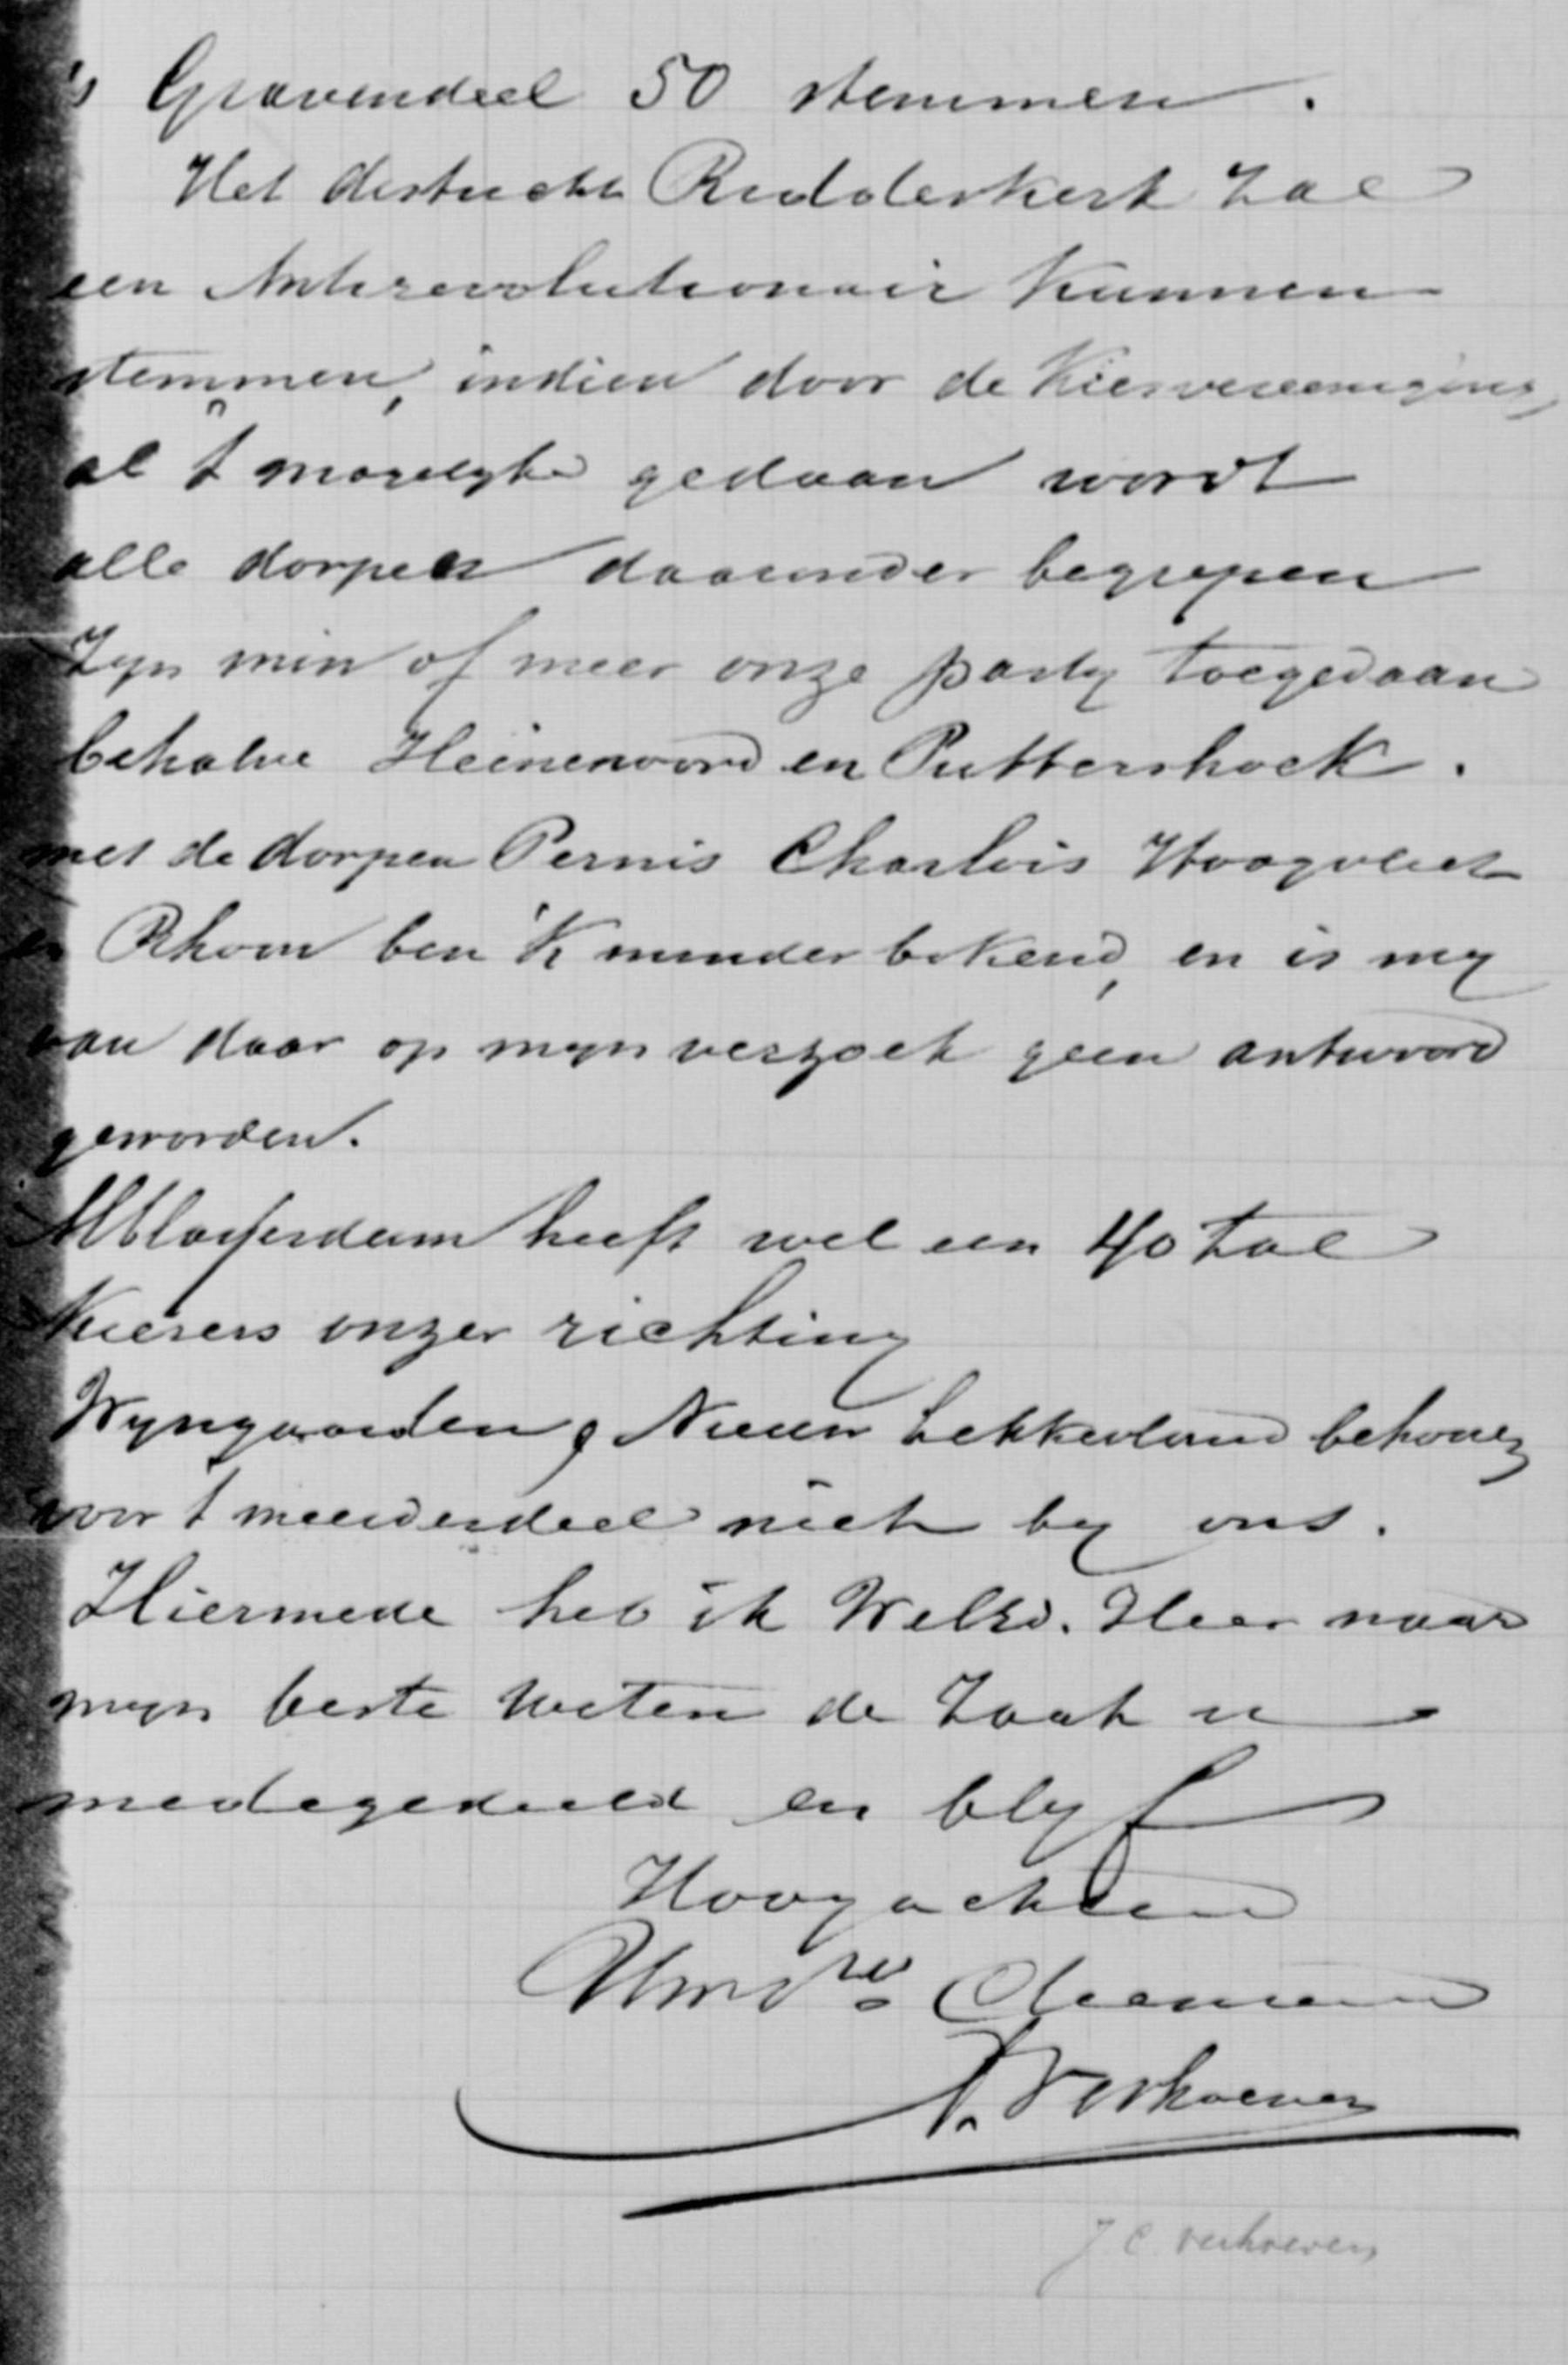 's Gravendeel 50 stemmen.
Het districkt Ridderkerk zal
een Antirevolutionair kunnen
stemmen, indien door de Kiesvereeniging
al 't mogelyke gedaan wordt
alle dorpen daaronder begrepen
Zyn min of meer onze party toegedaan
behalve Heinenoord en Puttershoek.
met de dorpen Pernis Charlois Hoogvliet
en Rhoon ben 'k minder bekend, en is my
van daar op myn verzoek geen antwoord
geworden.
Alblasserdam heeft wel een 40 tal
Kiesers onzer richting
Wyngaarden & Nieuw Lekkerland behooren
voor 't meerderdeel niet by ons.
Hiermede heb ik WelEd. Heer naar
myn beste weten de zaak u
medegedeeld en blyf
Hoogachtend
UEd
Verhoeven
J C Verhoeven